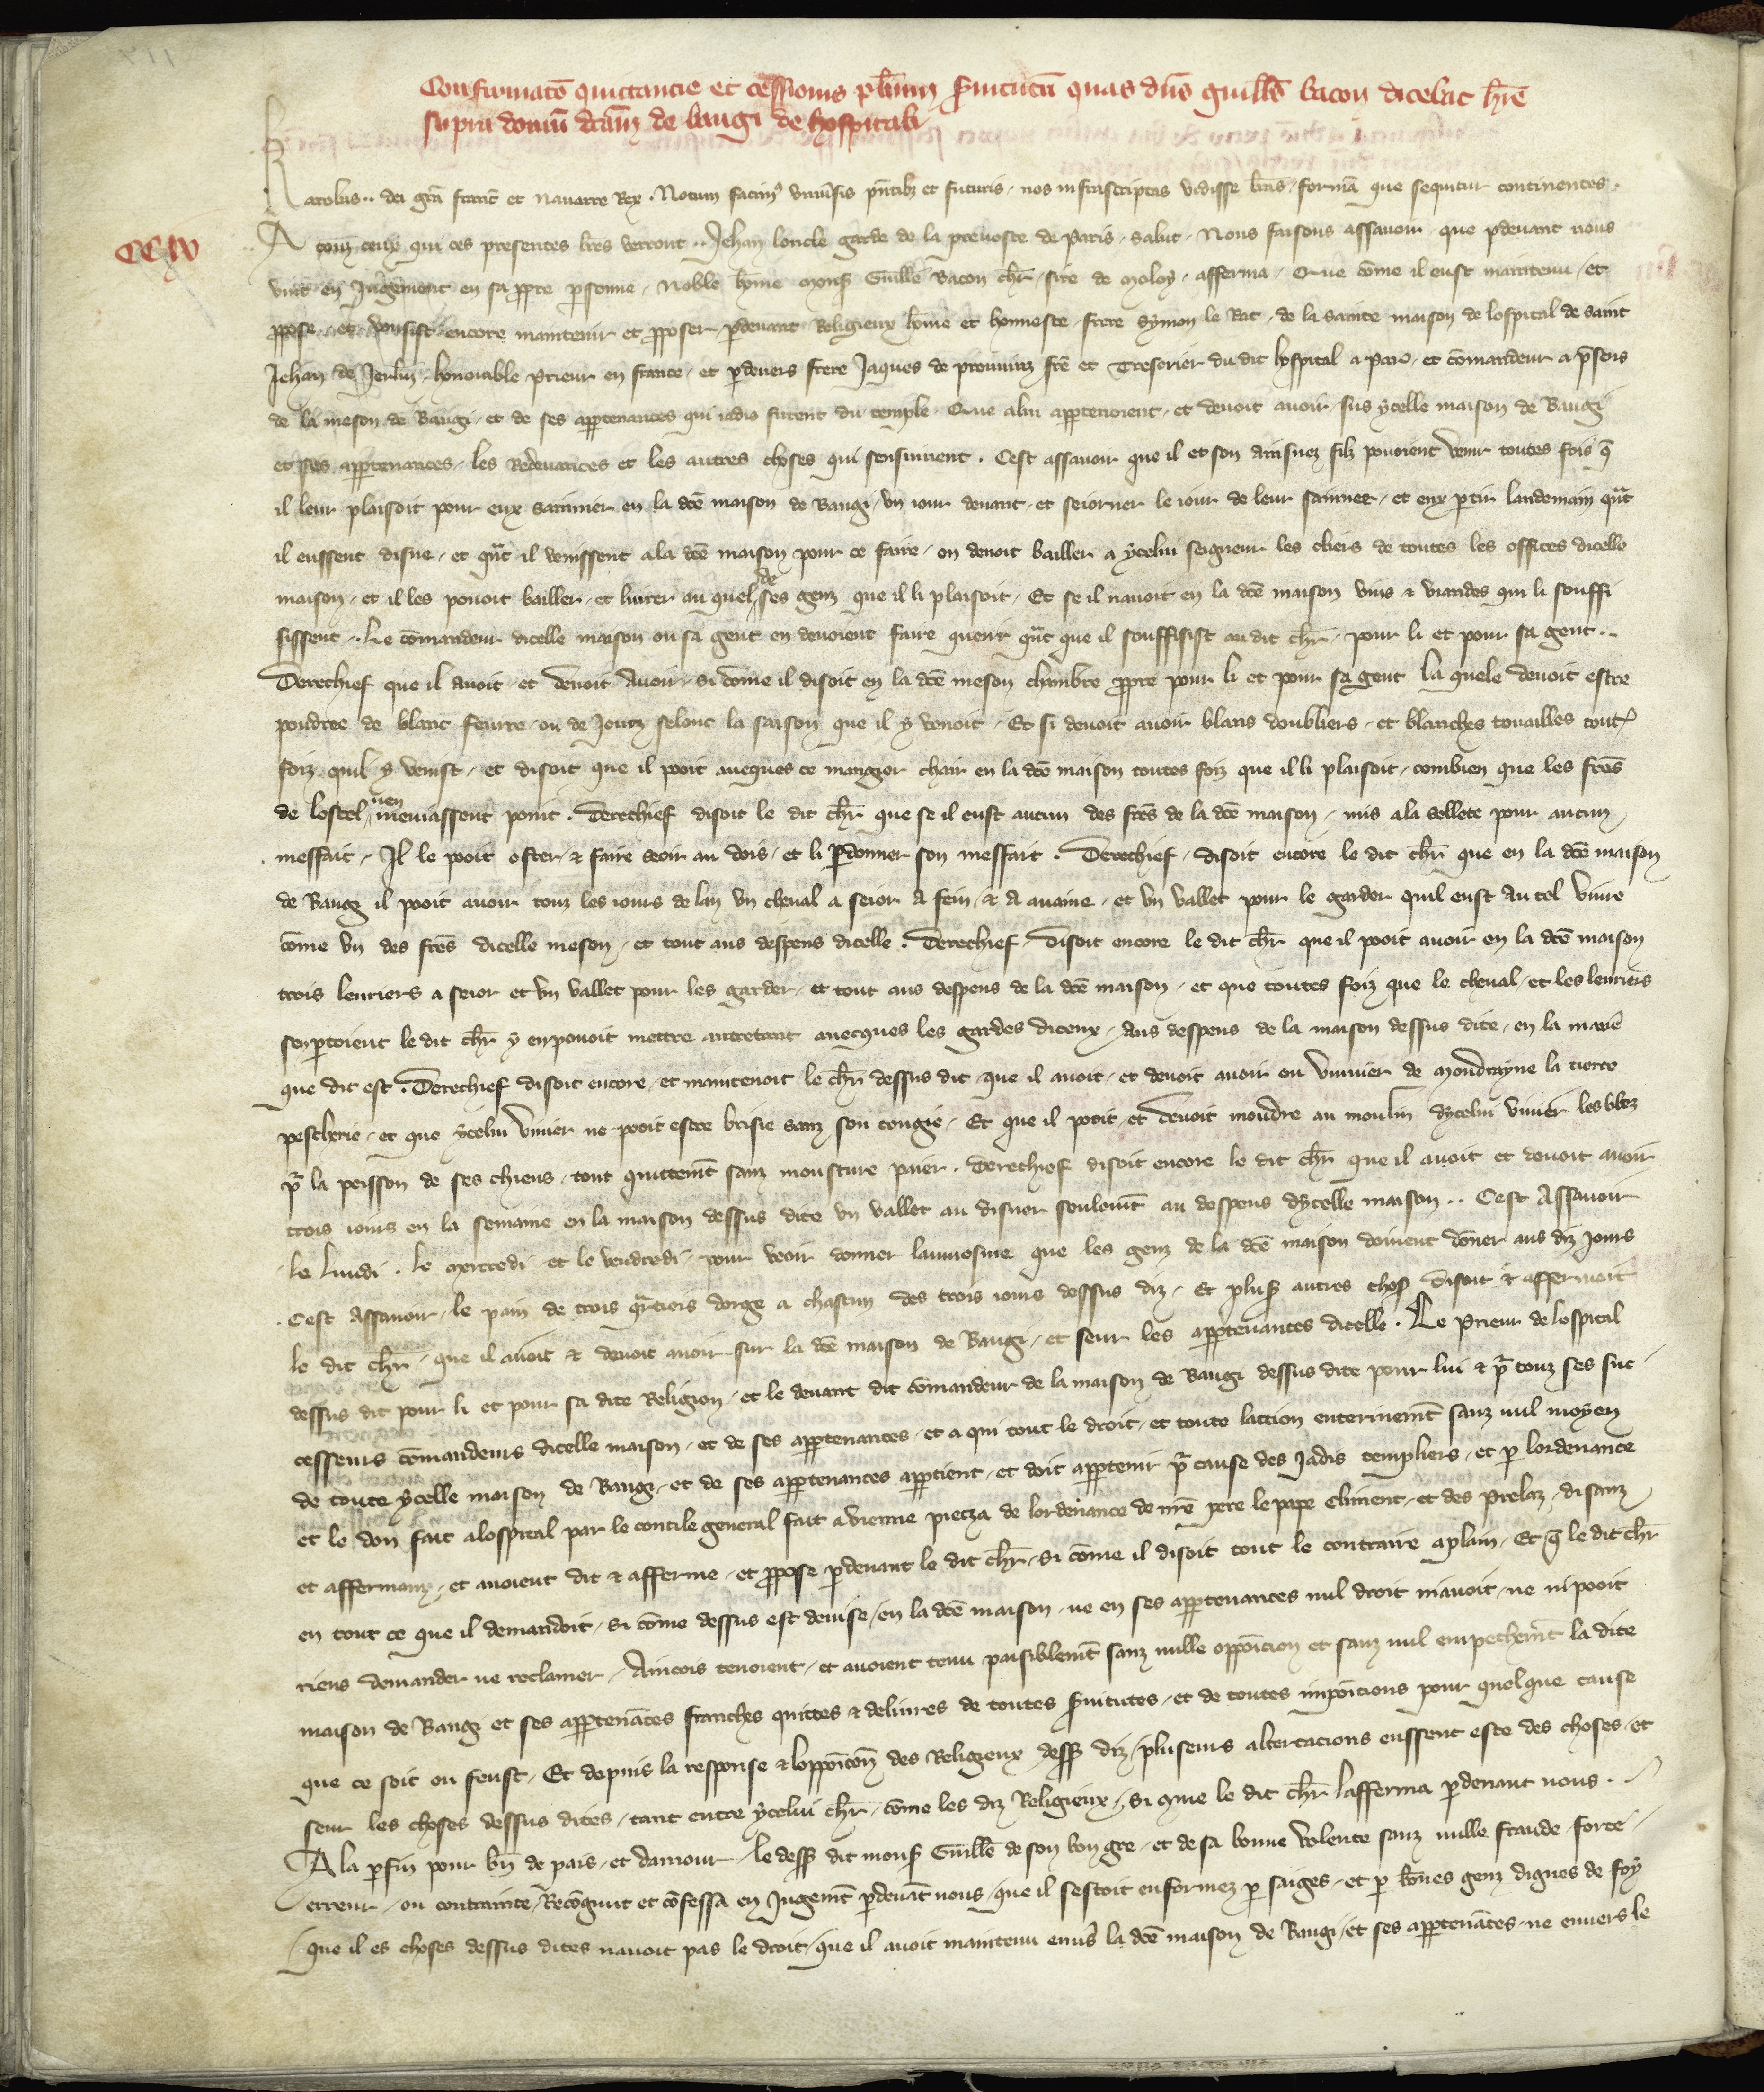 Confirmatō quittancie et cessionis pͬlium ẜuitutū quas dn̄s guillꝰ bacon dicebat hr̄e
supra domū dcām de baugi de hospitali
Karolus .. dei grā franc̄ et Nauarre Rex . Notum facimꝰ vniūsis pn̄tibꝫ et futuris , nos infrascriptas vidisse lrās , formā que sequitur continentes .
CCIIII
A touz ceux qui ces presentes lrēs verront .. Jehan loncle garde de la preuoste de Paris , salut . Nous faisons assauoir que ꝑdeuant nous
vint en Jugement en sa ꝓpre ꝑsonne , Noble hōme monẜ Guillē Bacon chlr̄ , sire de moloy , afferma , Que cōme il eust maintenu , et
ꝓpose , et vousist encore maintenir et ꝓposer , ꝑdeuant Religieux hōme et honneste , frere Symon le Rat , de la sainte maison de lospital de saint
Jehan de Jerlm̄ , honorable Prieur en france , et ꝑdeuers frere Jaques de prouuinz frē et Tresorier du dit hospital a Par̄ , et cōmandeur a p̄sens
de la meson de Baugi , et de ses apꝑtenances qui iadis furent du temple . Que alui apꝑtenoient , et deuoit auoir , sus ycelle maison de Baugi
et ses apꝑtenances , les Redeuances et les autres choses qui sensiuient . Cest assauoir que il et son ainsnez filz pouoient venir toutes fois q̄
il leur plaisoit pour eux sainnier en la dcē maison de Baugi , vn iour deuant , et seiorner le iour de leur sainnee , et eux ꝑtir landemain qn̄t
il eussent disne , et qn̄t il venissent ala dcē maison pour ce faire , on deuoit bailler a ycelui seigneur les clers de toutes les offices dicelle
maison , et il les pouoit bailler , et liurer auquel de ses genz que il li plaisoit , Et se il nauoit en la dcē maison vins ⁊ viandes qui li souffi
sissent , Le cōmandeur dicelle maison ou sa gent en deuoient faire querir qn̄t que il souffisist au dit chlr̄ , pour li et pour sa gent ..
Derechief que il auoit , et deuoit auoir , si cōme il disoit en la dcē meson chambre ꝓpre pour li et pour sa gent la quele deuoit estre
poudree de blanc feurre , ou de Jonz selonc la saison que il y venoit , Et si deuoit auoir blans doubliers , et blanches touailles toutꝭ
foiz quil y venist , et disoit que il pooit auecques ce mangier chair en la dcē maison toutes foiz que il li plaisoit , combien que les frēs
de lostel nen meniassent point . Derechief disoit le dit chlr̄ que se il eust aucun des frēs de la dcē maison , mis ala sellete pour aucun
messait , Il le pooit oster , ⁊ faire seoir au dois , et li ꝑdonner son meffait . Derechief , disoit encore le dit chlr̄ que en la dcē maison
de Baugi il pooit auoir touz les iours de lan vn cheual a seior a fein , ⁊ a auaine , et vn vallet pour le garder quil eust au tel viure
cōme vn des frēs dicelle meson , et tout aus despens dicelle . Derechief , disoit encore le dit chlr̄ que il pooit auoir en la dcē maison
trois leuriers a seior et vn vallet pour les garder , et tout aus despens de la dcē maison , et que toutes foiz que le cheual , et les leuriers
senꝑtoient le dit chlr̄ y enpouoit mettre autretant auecques les gardes diceux , Aus despens de la maison dessus dite , en la maniē
que dit est . Derechief disoit encore , et maintenoit le chlr̄ dessus dit , que il auoit , et deuoit auoir ou viuier de moudrayne la tierce
pescherie , et que ycelui viuier ne pooit estre brisie sanz son congie , Et que il pooit , et deuoit moudre au moulin dycelui viuier les blez
pͬ la peisson de ses chiens , tout quittemt̄ sanz mousture paier . Derechief disoit encore le dit chlr̄ que il auoit et deuoit auoir
trois iours en la semaine en la maison dessus dite vn vallet au disner seulemt̄ au despens dycelle maison .. Cest Assauoir
le lundi . le mercredi , et le vendredi , pour veoir donner laumosne que les genz de la dcē maison doiuent dōner aus diz Jours
Cest Assauoir , le pain de trois qͬtiers dorge a chascun des trois iours dessus diz , Et plusẜ autres chosꝭ disoit ⁊ affermoit
le dit chlr̄ , que il auoit ⁊ deuoit auoir sur la dcē maison de Baugi , et seur les apꝑtenances dicelle . Le Prieur de lospital
dessus dit pour li et pour sa dite Religion , et le deuant dit cōmandeur de la maison de Baugi dessus dite pour lui ⁊ pͬ touz ses suc
cesseurs cōmandeurs dicelle maison , et de ses apꝑtenances , et a qui tout le droit , et toute laction enterinemt̄ sanz nul moyen
de toute ycelle maison de Baugi , et de ses apꝑtenances apꝑtient , et doit apꝑtenir pͬ cause des Jadis templiers , et ꝑ lordenance
et le don fait alospital par le concile general fait a vienne pieca de lordenance de nr̄e pere le pape Climent , et des Prelaz , disanz
et affermanz , et auoient dit ⁊ afferme , et ꝓpose ꝑdeuant le dit chlr̄ , si cōme il disoit tout le contraire aplain , Et q̄ le dit chlr̄
en tout ce que il demandoit , si cōme dessus est deuise , en la dcē maison , ne en ses apꝑtenances nul droit nauoit , ne ni pooit
riens demander ne reclamer , Aincois tenoient , et auoient tenu paisiblemt̄ sanz nulle oppoicion et sanz nul empechemt̄ la dite
maison de Baugi et ses apꝑtenāces franches quittes ⁊ deliures de toutes ẜuitutes , et de toutes impoicions pour quelque cause
que ce soit ou feust , Et depuis la response ⁊ loppoicōn des Religieux dessꝰ diz , pluseurs altercacions eussent este des choses , et
seur les choses dessus dites , tant entre ycelui chlr̄ , cōme les diz Religieux , Si que le dit chlr̄ lafferma ꝑdeuant nous .
A la ꝑfin pour bn̄ de pais , et damour , le dessꝰ dit monẜ Guillē de son bon gre , et de sa bonne volente sanz nulle fraude , force
erreur , ou contrainte , Recōgnut et cōfessa en Jugemt̄ ꝑdeuāt nous , que il sestoit enformez ꝑ saiges , et ꝑ bōnes genz dignes de foy
que il es choses dessus dites nauoit pas le droit , que il auoit maintenu enuꝰs la dcē maison de Baugi , et ses apꝑtenāces , ne enuers le